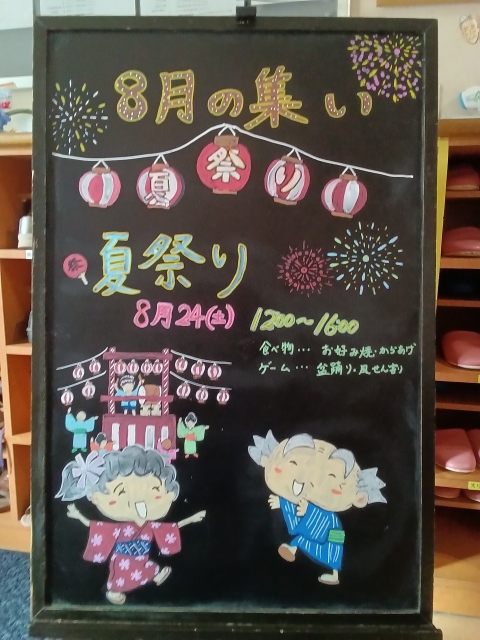 8月の集い
夏祭り
夏祭り
8月24(土) 1200〜1600
食べ物… お好み焼・からあげ
ゲーム… 盆踊り・風せん割り